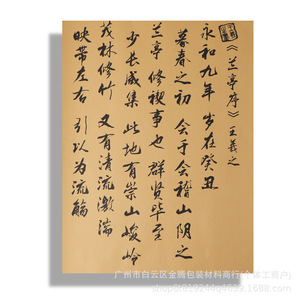 《兰亭序》王羲之
永和九年 岁在癸丑
暮春之初 会于会稽山阴之
兰亭 修禊事也 群贤毕至
少长咸集 此地有崇山峻岭
茂林修竹 又有清流激湍
映带左右 引以为流觞
广州市白云区金腾包装材料商行(个体工商户)